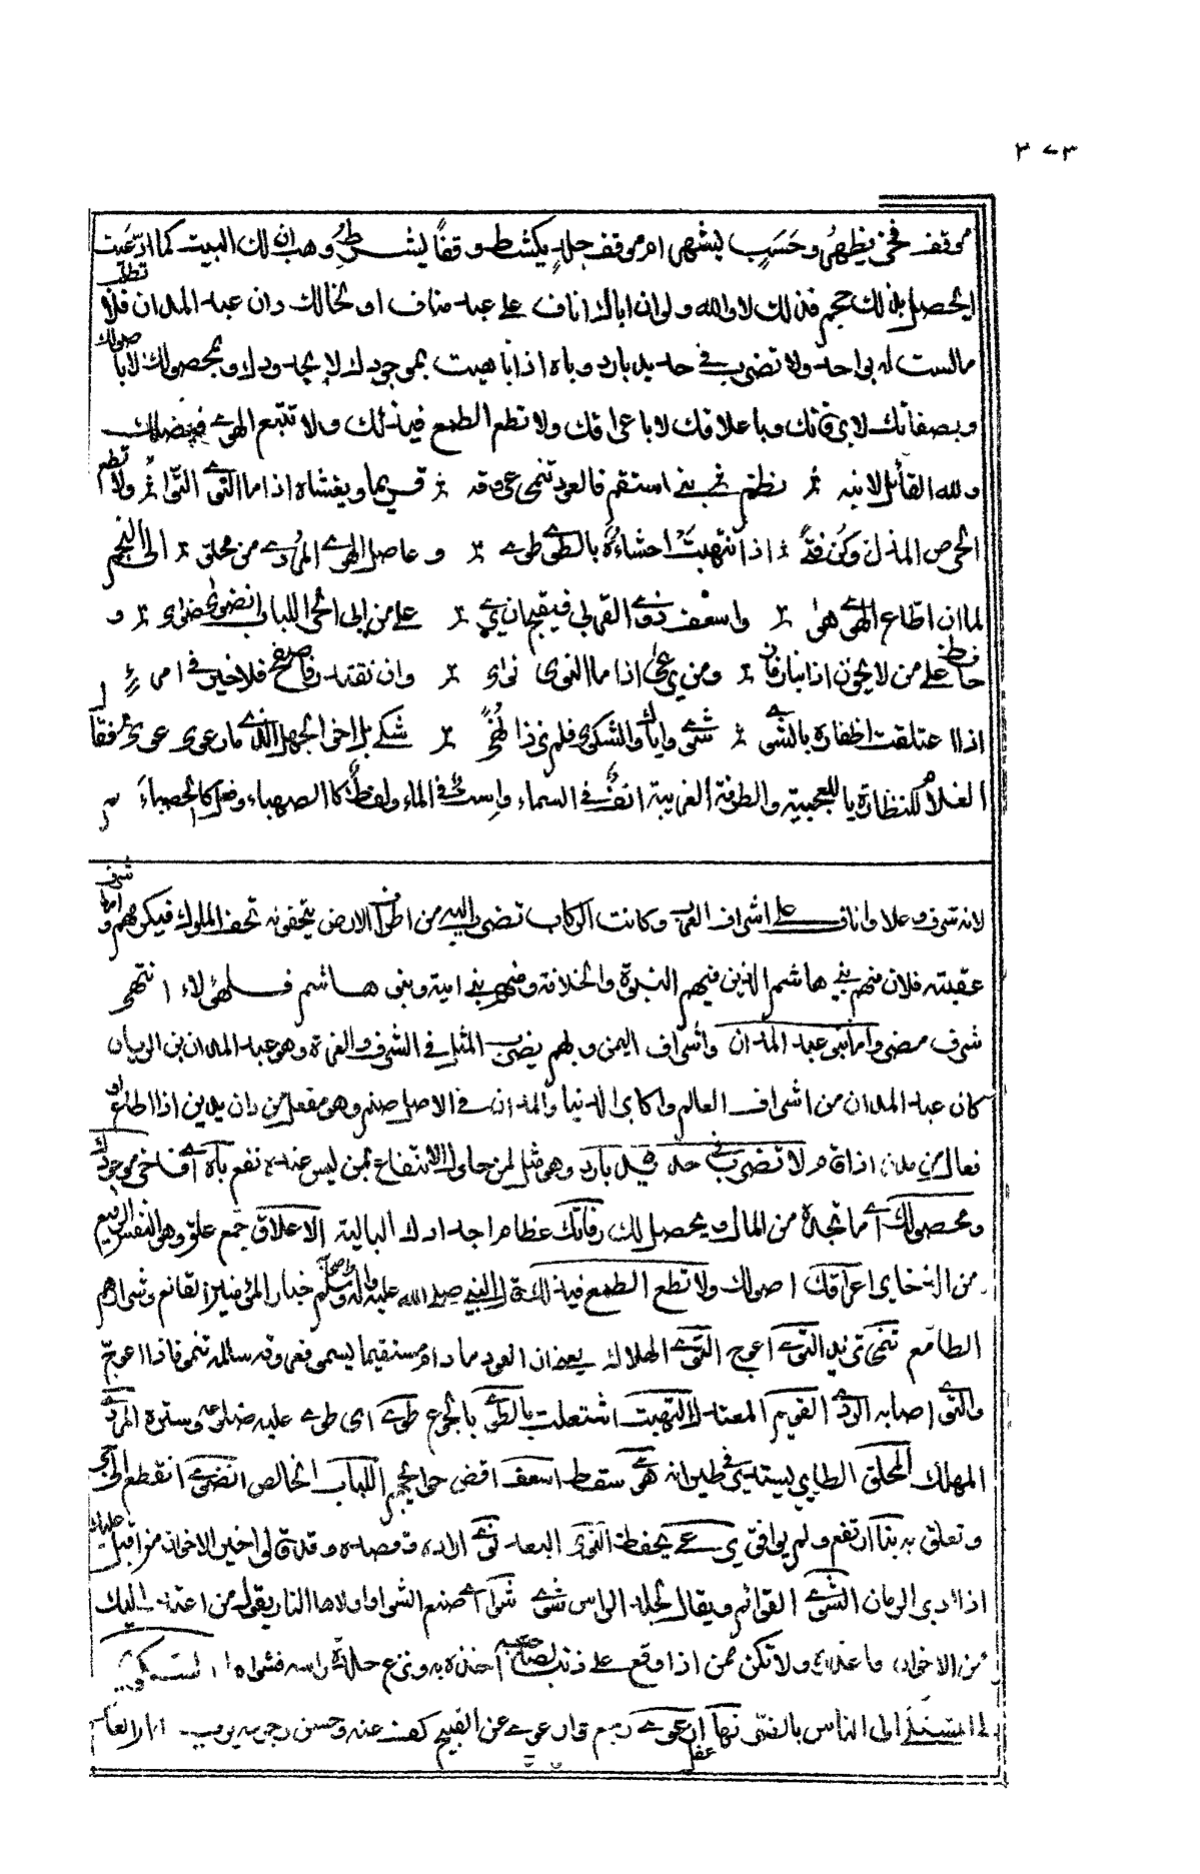 ٣٧٣
موقف فخر يظهر وحسب يشهر ام موقف جلد يكشط وقفا يشرط وهب ان لك البيت كما ادعيت
ايحصل بذلك حجم قذالك لا والله ولو ان اباك اناف على عبد مناف او لخالك دان عبد المدان فلا تطلق
ما لست له بواجد ولا تضرب في حديد بارد وباه اذا باهيت بموجودك لا بجدودك وبمحصولك لا باصولك
وبصفاتك لا برفاتك وباعلاقك لا باعراقك ولا تطع الطمع فيذلك ولا تتبع الهوى فيضلك
ولله القائل لابنه نظم بني استقم فالعود تنمي عروقه قويما ويغشاه اذا ما التوى التوى ولا تطع
الحرص المذل وكن فتى اذا التهبت احشاؤه بالطوى طوى وعاص الهوى المردي من محلق الى النجم
لما ان اطاع الهوى هوى واسعف ذوي القربى فيقبح ان يرى على من الى الحر اللباب انضوى ضوى و
حافظ على من لا يخون اذا نبا زمان ومن يرعى اذا ما النوى نوى وان تقتدر فاصفح فلا خير في امرئ
اذا اعتلقت اظفاره بالشوى شوى واياك والشكوى فلم تر ذا نهى شكى بل اخو الجهل الذي ما ارعوى عوى فقال
الغلام للنظارة يا للعجيبة والطرفة الغريبة انف في السماء واست في الماء ولفظ كالصهباء وفعل كالحصباء
لانه شرف وعلا واناف على اشراف العرب وكانت الركاب تضرب اليه من اطراف الارض يتحفونه تحف الملوك فيكرمهم و
عقبته فلان منهم بني هاشم الذين فيهم النبوة والخلافة ومنهم بني امية وبنى هاشم فلهؤلاء انتهى
شرف مضر واما بنو عبد المدان واشراف اليمن وبهم يضرب المثل في الشرف والعزة وهو عبد المدان بن الريان
كان عبد المدان من اشراف العالم واكابر الدنيا والمدان في الاصل صنم وهو مفعل من دان يدين اذا اطاع
لا تضرب في حديد بارد وهو مثل لمن حاول الانتفاع بمن ليس عنده نفع باه اى فاخر موجودك
ومحصولك اى ما تجده من المال ويحصل لك رفاتك عظام اجدادك البالية الاعلاق جمع علق وهو النفيس الرفيع
من الذخاير اعراقك اصولك ولا تطع الطمع فيذلك قال النبي صلى الله عليه واله وسلم خيار المؤمنين القانع وشرارهم
الطامع تنمى تزيد التوى اعوج التوى الهلاك يعني ان العود ما دام مستقيما يسمى فعروقه سالمة تنمو فاذا اعوج
والتوى اصابه الردى القويم المعتدل التهبت اشتعلت بالطوى بالجوع طوى اى طوى عليه ضلوعه وستره المردي
المهلك المحلق الطاير يستدير في طيرانه هوى سقط اسعف اقض حوايجهم اللباب الخالص انضوى انقطع
وتعلق به نبا ارتفع ولم يوافق يرعى يحفظ النوى البعد نوى اراده وقصده وقد قال لي اخير الاخوان من اقبل عليك
اذا ادبر الزمان الشوى القوائم ويقال لجلد الراس شوى شوى اى صنع الشوا واولاها النار يقول من اعتذر اليك
من الاخوان فاعذره ولا تكن ممن اذا وقع على ذنب لصاحبه اخذه به ونزع جلدة راسه فشواه
الى الناس بالضر نهى عقل ارعوى رجع فارعوى عن القبيح كف عنه وحسن رجوعه